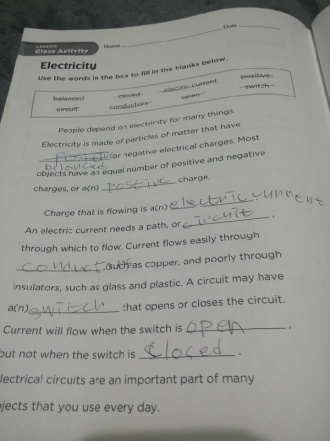 Date
LESSON
Class Activity Name
Electricity
Use the words in the box to fill in the blanks below.
balanced closed electric current positive
circuit conductors open switch
People depend on electricity for many things.
Electricity is made of particles of matter that have
or negative electrical charges. Most
balanced
objects have an equal number of positive and negative
charges, or a(n) positive charge.
Charge that is flowing is a(n) electric current
An electric current needs a path, or circuit .
through which to flow. Current flows easily through
conductors such as copper, and poorly through
insulators, such as glass and plastic. A circuit may have
a(n) switch that opens or closes the circuit.
Current will flow when the switch is open .
but not when the switch is closed .
lectrical circuits are an important part of many
jects that you use every day.